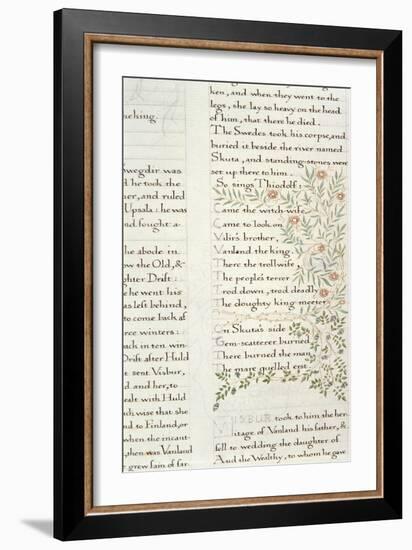 he king.
wegdir was
d he took the
er, and ruled
Upsala: he was
nd fought a-
he abode in
w the Old, &
ghter Drift:
he went his
as left behind,
to come back af
ree winters:
ack in ten win-
Drift after Huld
t sent Visbur,
d and her, to
dealt with Huld
uch wise that she
nd to Finland, or
when the incant-
, then was Vanland
grew fain of far
ken, and when they went to the
legs, she lay so heavy on the head
of him, that there he died.
The Swedes took his corpse, and
buried it beside the river named
Skuta, and standing-stones were
set up there to him.
So sings Thiodolf:
Came the watch-wife,
Came to look on
Vilir's brother,
Vanland the king.
There the trollwife,
The people's terror
Trod down, trod deadly
The doughty king meeter.
On Skuta's side
Gem-scatterer burned
There burned the man
The mare quelled erst.
VISBUR took to him the her-
itage of Vanland his father, &
fell to wedding the daughter of
Aud the Wealthy, to whom he gave